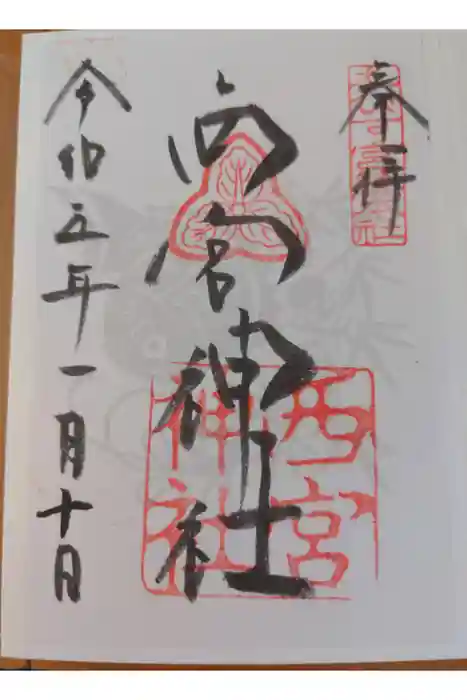 奉拝
西宮神社
西宮神社
令和五年一月十日